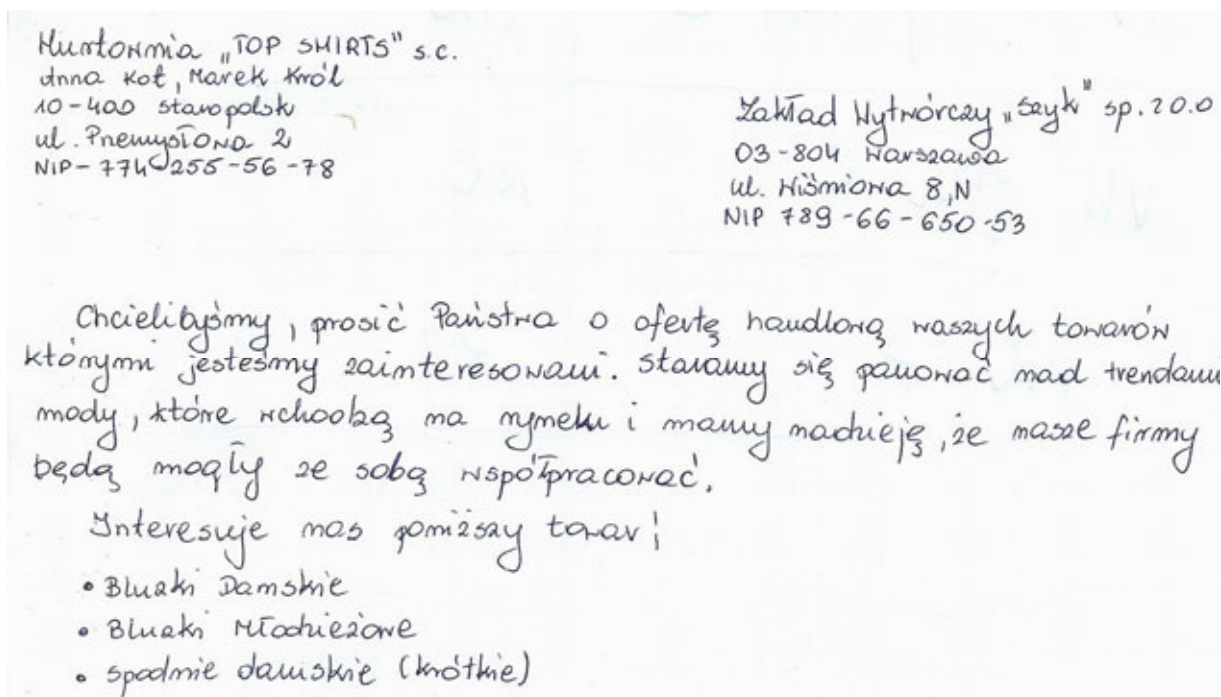 Hurtownia „TOP SHIRTS" s.c.
Anna Kot, Marek Król
10-400 Staropolsk
ul. Przemysłowa 2
NIP - 774-255-56-78
Zakład Wytwórczy „Szyk" sp. z o.o
03-804 Warszawa
ul. Wiśniowa 8,N
NIP 789-66-650-53
Chcielibyśmy, prosić Państwa o ofertę handlową waszych towarów
którymi jesteśmy zainteresowani. Staramy się panować nad trendami
mody, które wchodzą na rynek i mamy nadzieję, że nasze firmy
będą mogły ze sobą współpracować.
Interesuje nas poniższy towar:
• Bluzki Damskie
• Bluzki Młodzieżowe
• spodnie damskie (krótkie)